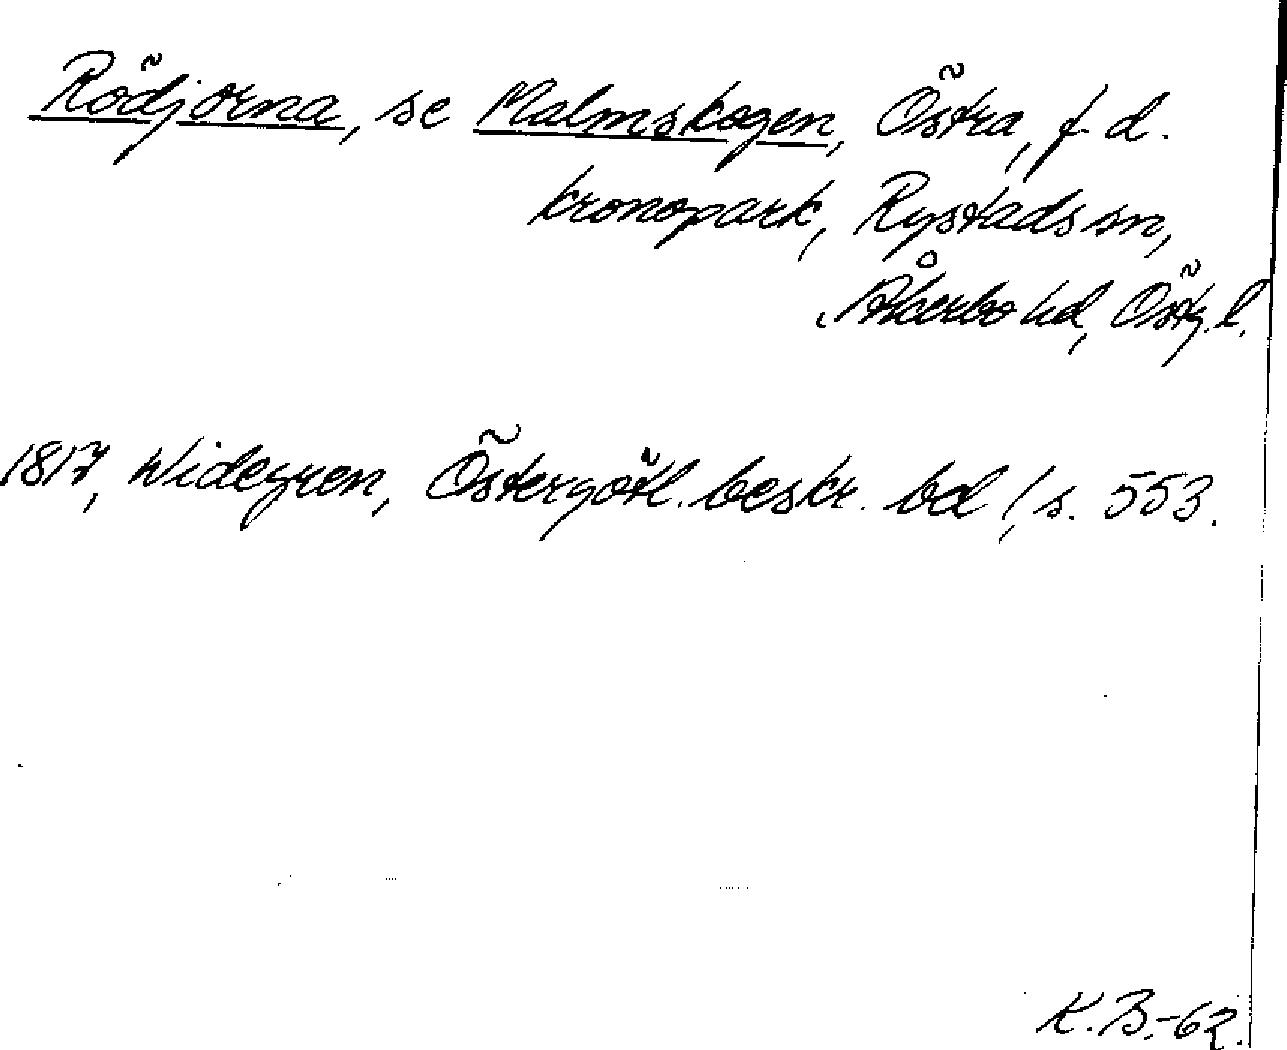 Rödjorna, se Malmskogen, Östra, f.d.
kronopark, Rystads sn,
Åkerbo hd, Östg.l.
1817, Widegren, Östergötl. beskr. bd I, s. 553.
K.B.-62.